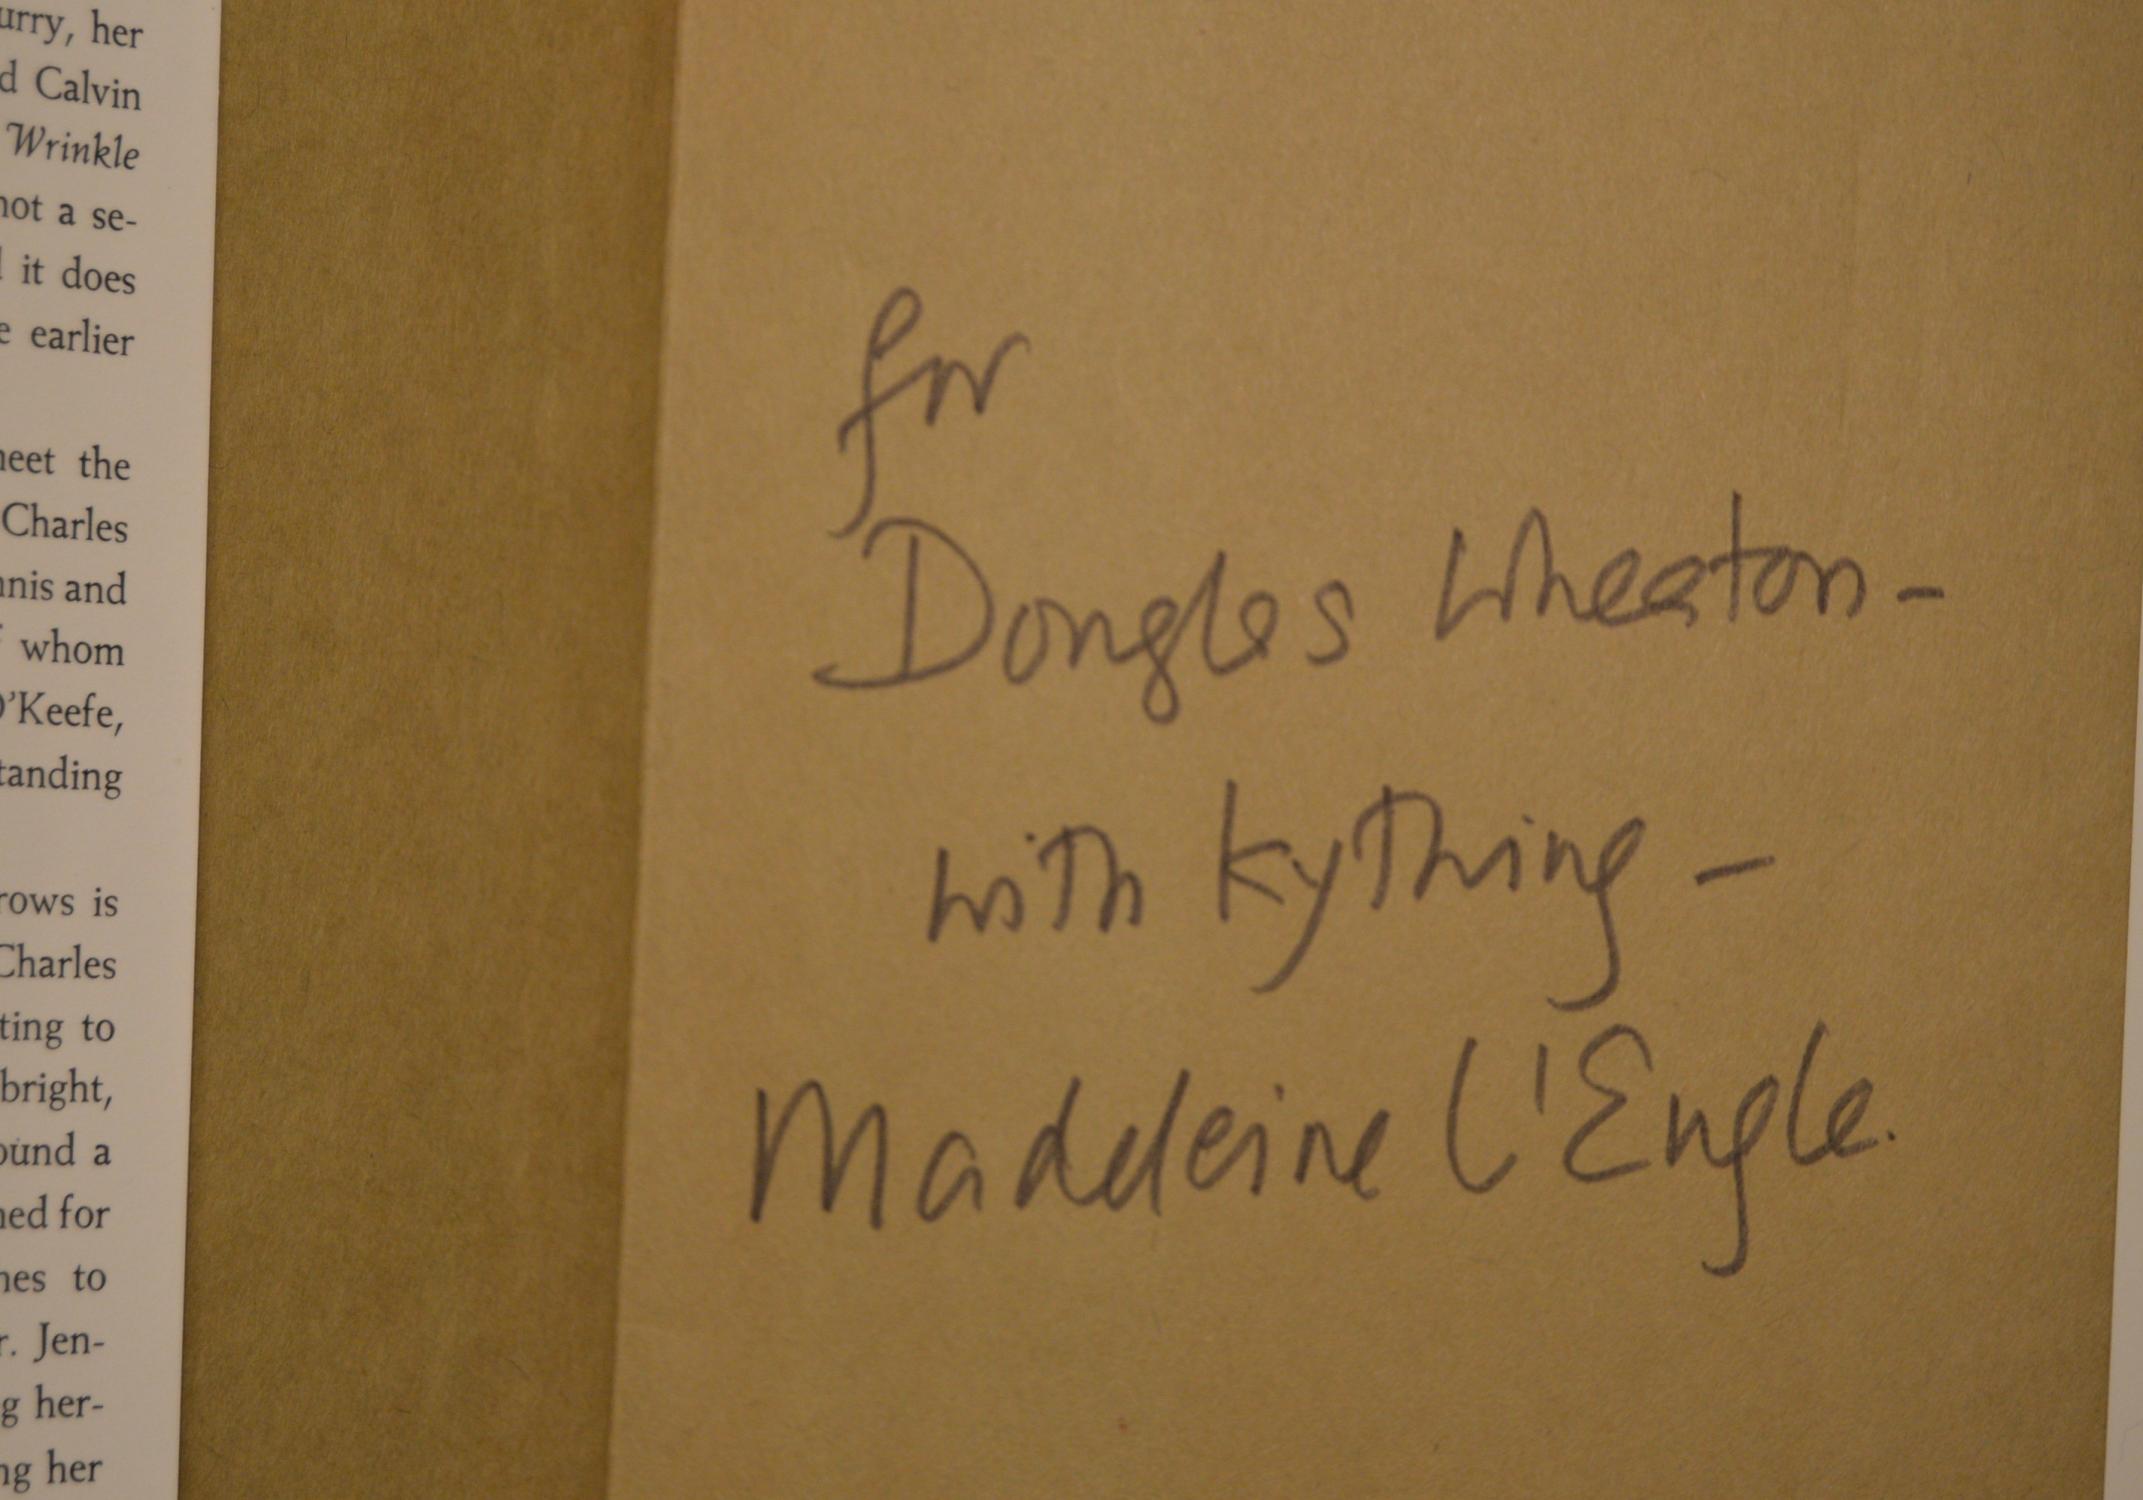 urry, her
d Calvin
Wrinkle
not a se-
it does
e earlier
neet the
Charles
nnis and
whom
O'Keefe,
tanding
rows is
Charles
ting to
bright,
ound a
ned for
nes to
r. Jen-
g her-
ng her
for
Dougles Wheaton-
with Kything -
Madeleine L'Engle.